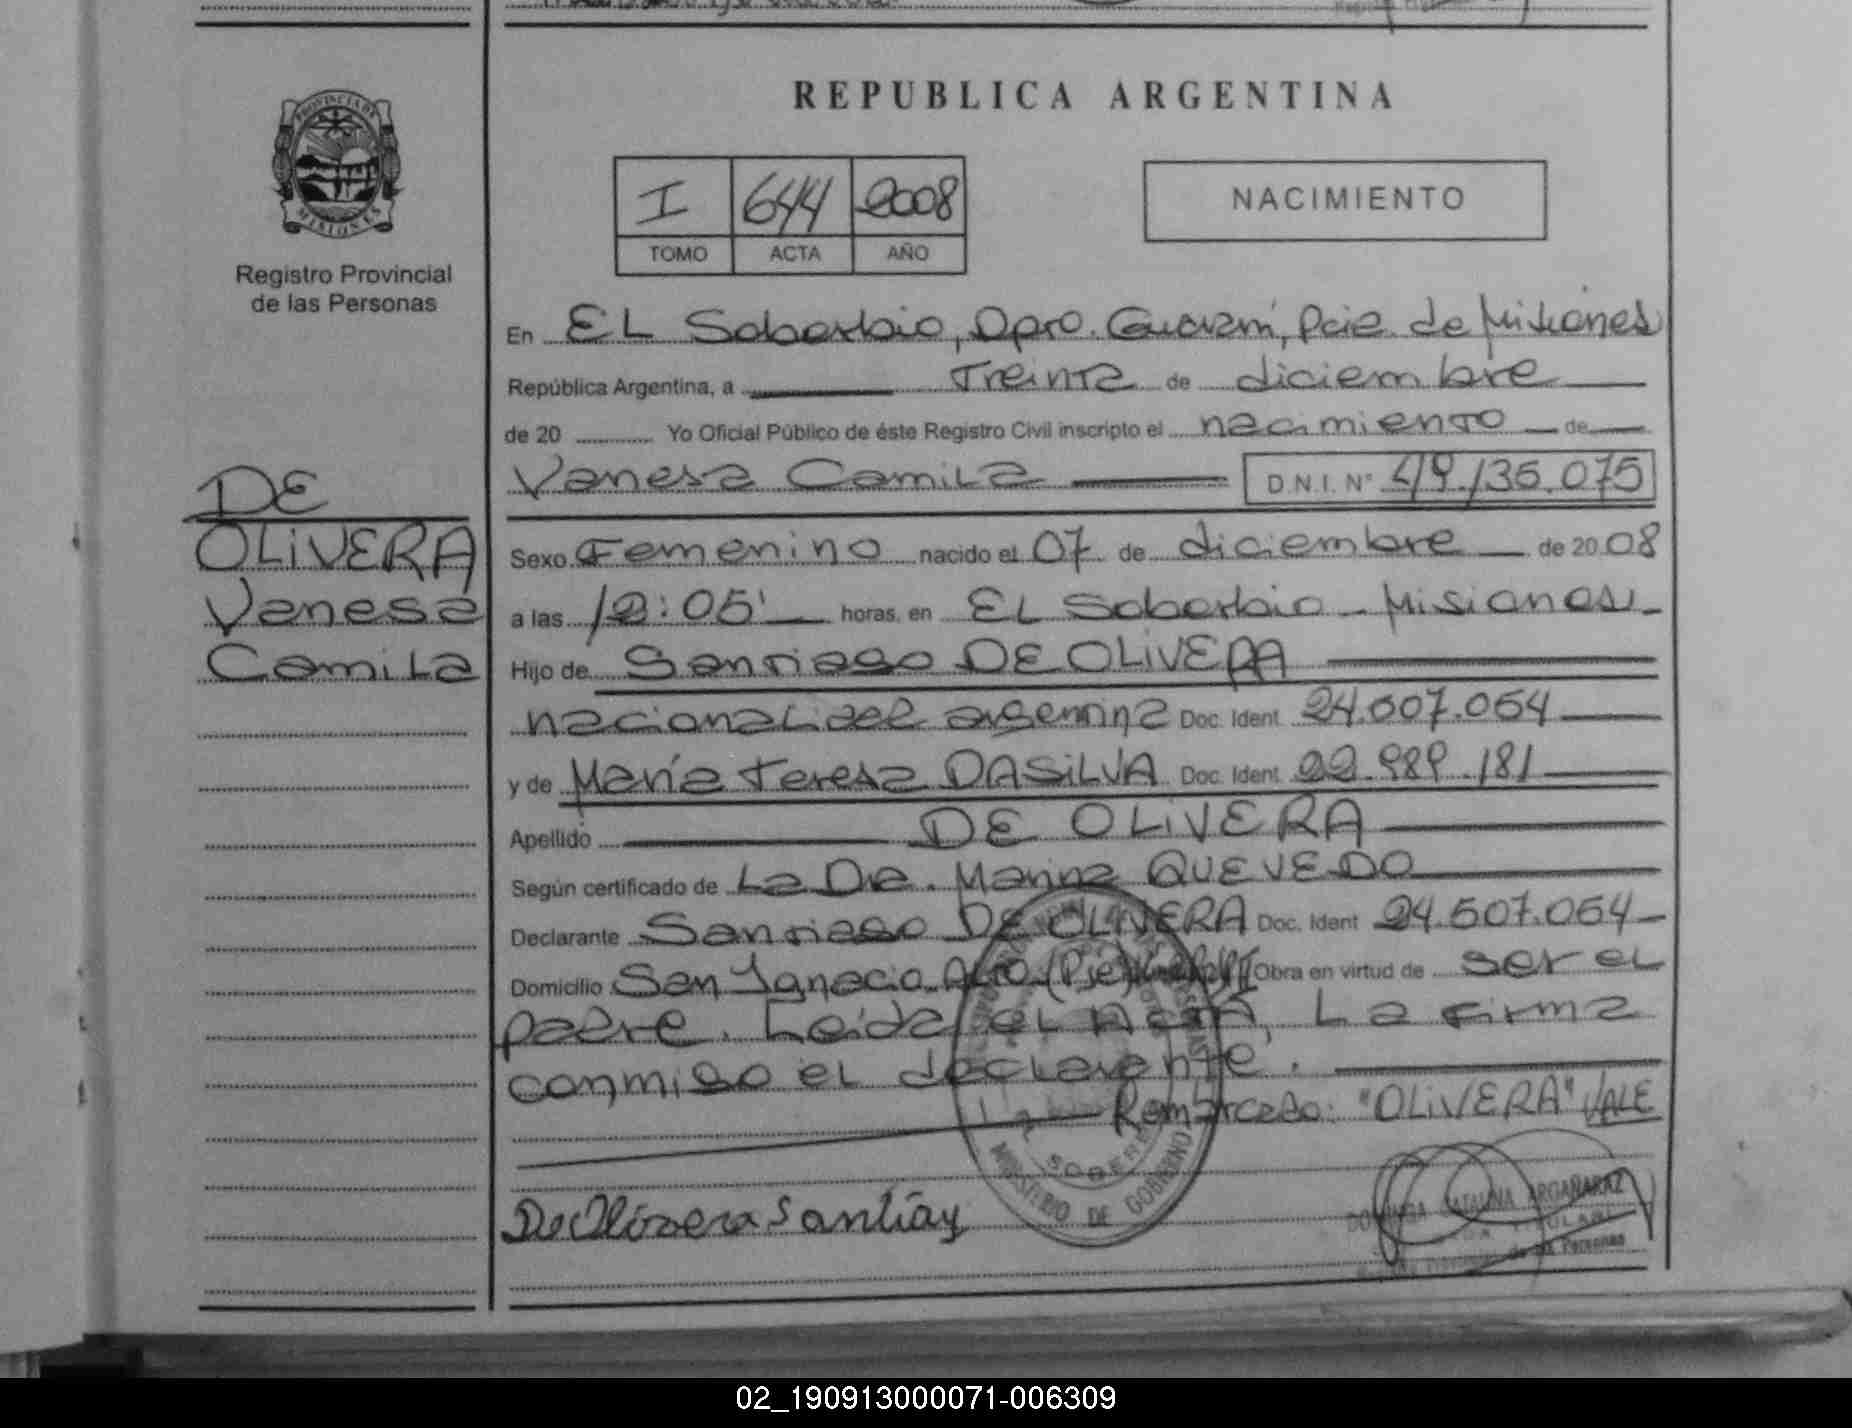 REPUBLICA ARGENTINA
PROVINCIA DE
MISIONES
Registro Provincial
de las Personas
I 644 2008
TOMO ACTA AÑO
NACIMIENTO
En EL Soberbio, Dpto. Guaraní, Pcia. de Misiones
República Argentina, a Treinta de diciembre
de 20 Yo Oficial Público de éste Registro Civil inscripto el nacimiento de
Vanesa Camila D.N.I. N° 49.135.075
DE
OLIVERA
Vanesa
Camila
Sexo Femenino nacido el 07 de diciembre de 20 08
a las 12:05' horas, en EL Soberbio - Misiones.
Hijo de Santiago DE OLIVERA
nacionalidad argentina Doc. Ident. 24.507.054
y de María Teresa DASILVA Doc. Ident. 22.989.181
Apellido DE OLIVERA
Según certificado de La Dra. Marina QUEVEDO
Declarante Santiago DE OLIVERA Doc. Ident 24.507.054
Domicilio San Ignacio Alto (Pje) Obra en virtud de ser el
padre. Leida el Acta, La firma
conmigo el declarante.
Remarcado: "OLIVERA" VALE
SOBERBIO
MINISTERIO DE GOBIERNO
De Olivera Santiag
CATALINA ARGAÑARAZ
TITULAR
de las Personas
02_190913000071-006309